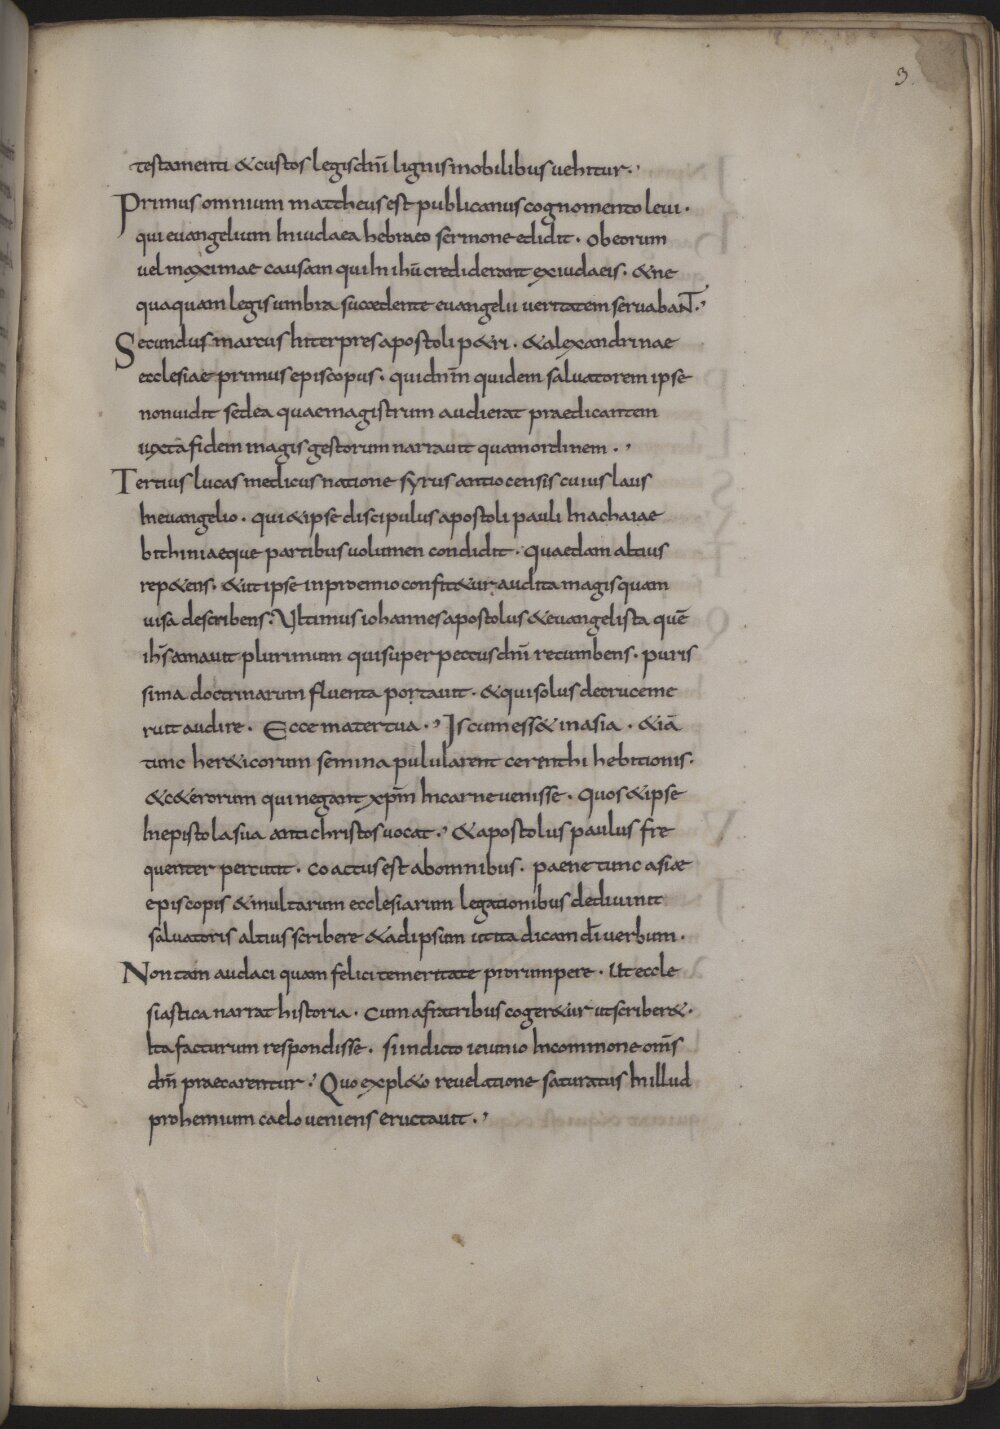 3
testamenti &custos legisdn̄i lignismobilibusuehitur.
Primusomnium mattheusest publicanuscognomentoleui.
quieuangelium Iniudaea hebraeo sermoneedidit. Obeorum
uelmaximae causam quiIn ihū crediderant exiudaeis. &ne
quaquamlegisumbra succedente euangelii ueritatemseruabaNT.
Secundusmarcus Interpresapostoli p&ri. &alexandrinae
ecclesiaeprimusepiscopus. quidn̄m quidem saluatoremipse
nonuidit sedea quaemagistrum audierat praedicantem
iuxtafidemmagisgestorumnarrauit quamordinem.
Tertiuslucasmedicusnatione syrusantiocensiscuiuslaus
Ineuangelio. qui&ipsediscipulusapostoli pauli Inachaiae
bithiniaeque partibusuolumen condidit. Quaedamaltius
rep&ens. &utipse inproemioconfit&ur auditamagisquam
uisa describens. Ultimusiohannesapostolus&euangelista quē
ih̄samauit plurimum quisuperpectusdn̄i recumbens. puris
sima doctrinarum fluenta portauit. &quisolusdecruceme
ruitaudire. Eccematertua. Iscumess&inasia. &iā
tunc her&icorum semina pulularent cerinthi hebitionis.
&c&erorum quinegant xp̄m Incarneuenisse. Quos&ipse
Inepistolasua antichristosuocat. &apostoluspaulus fre
quenter percutit. Coactusestabomnibus. paene tunc asiae
episcopis &multarum ecclesiarum legationibus dediuinit
saluatoris altiusscribere &adipsum utitadicam dī uerbum.
Nontam audaci quam felicitemeritate prorumpere. Ut eccle
siastica narrathistoria. Cum afratribuscoger&ur utscriber&.
Itafacturum respondisse. siindicto ieiunio Incommoneom̄s
dm̄ praecarentur. Quoexpl&o reuelatione saturatus Inillud
prohemium caeloueniens eructauit.